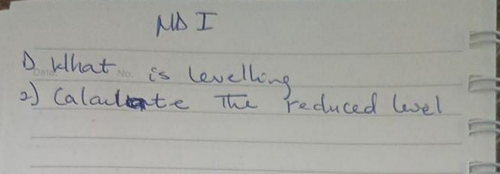 ND I
1) What is levelling
2) Calculate The reduced level